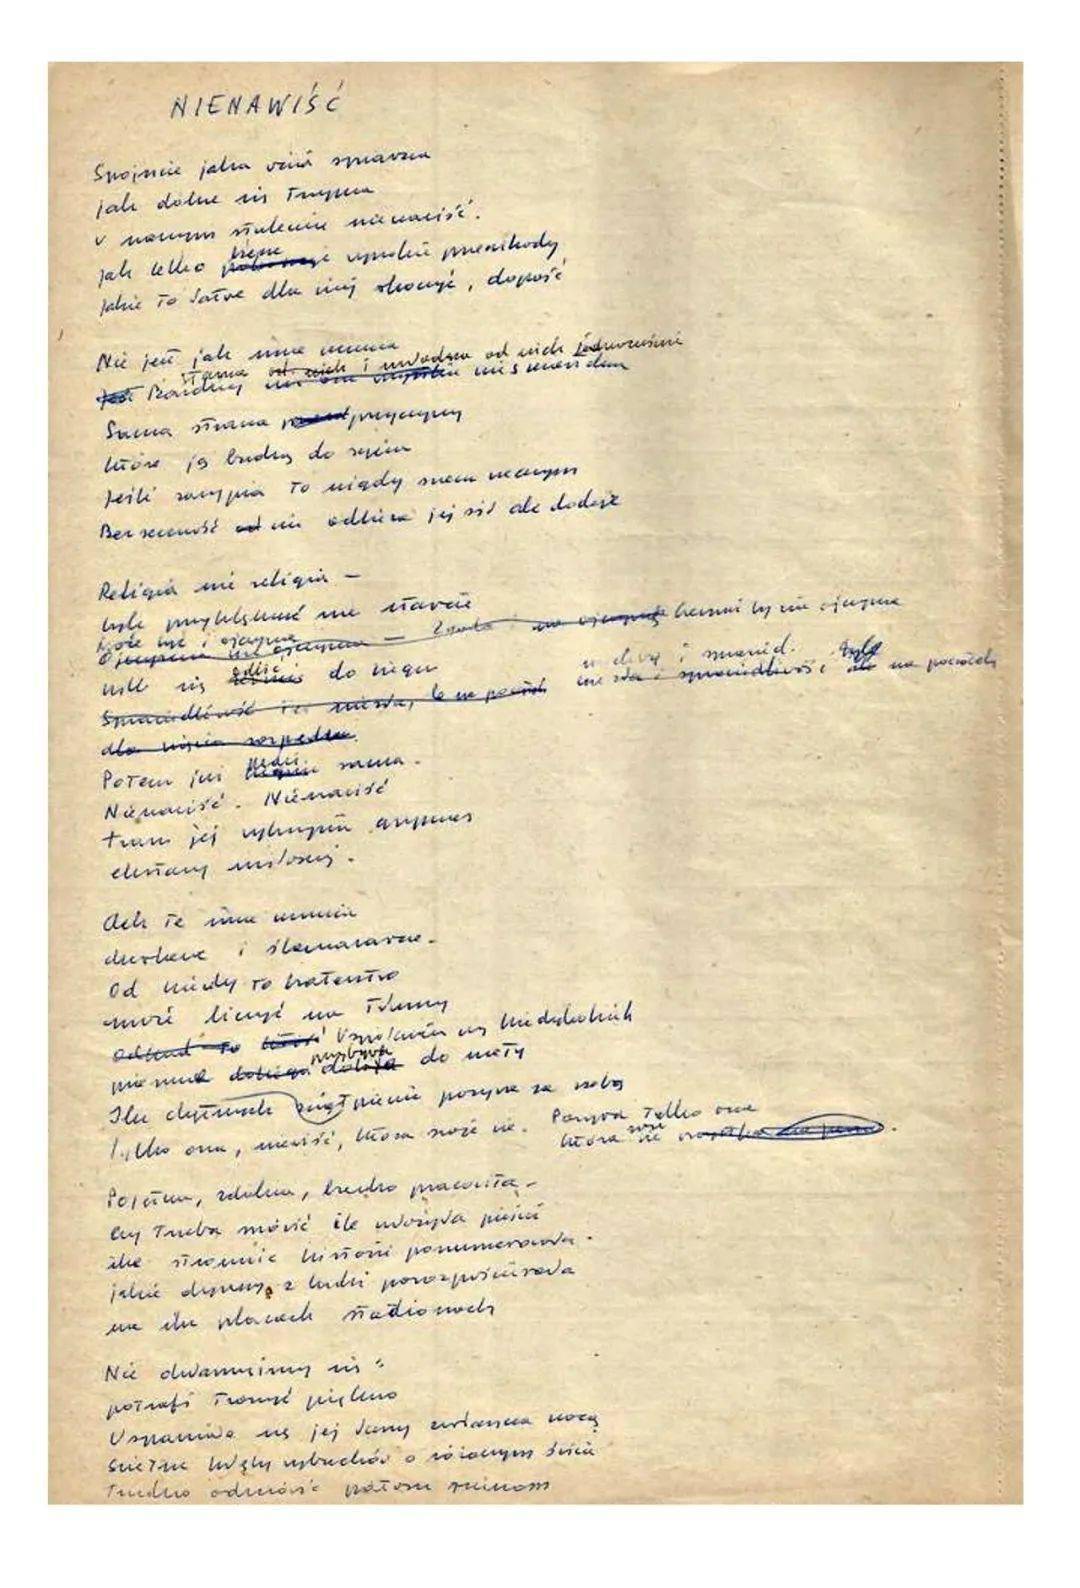 NIENAWIŚĆ
Spójrzcie jaka wciąż sprawna
jak dobrze się trzyma
w naszym stuleciu nienawiść.
jak lekko bierze wysokie przeszkody
Jakie to łatwe dla niej skoczyć, dopaść
Nie jest jak inne uczucia
starsza od nich i młodsza od nich jednocześnie
Sama stwarza przyczyny
które ją budzą do życia
Jeśli zasypia to nigdy snem wiecznym
Bezsenność nie odbiera jej sił ale dodaje
Religia nie religia –
byle przyklęknąć na starcie
Może być i ojczyzna
byle się do biegu
Potem już pędzi sama.
Nienawiść. Nienawiść
twarz jej wykrzywia grymas
ekstazy miłosnej.
Ach te inne uczucia
cherlawe i ślamazarne.
Od kiedy to braterstwo
może liczyć na tłumy
Współczucie czy kiedykolwiek
pierwsze przybywa do mety
Ilu chętnych zwątpienie porywa za sobą
Tylko ona, nienawiść, która swoje wie. Porywa tylko ona
która swoje wie
Pojętna, zdolna, bardzo pracowita.
Czy trzeba mówić ile ułożyła pieśni
ile stronnic historii ponumerowała.
jakie dywany z ludzi porozpościerała
na ilu placach stadionach
Nie okłamujmy się:
potrafi tworzyć piękno
Wspaniałe są jej łuny czarną nocą
Świetne kłęby wybuchów o różanym świcie
Trudno odmówić patosu ruinom